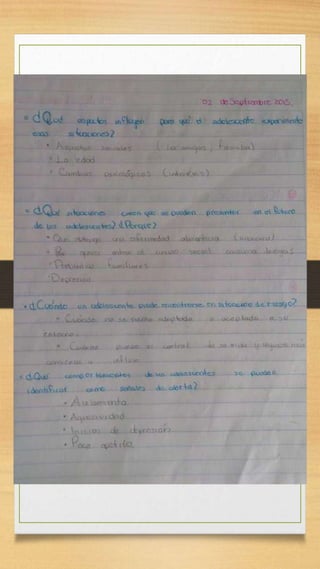 02 de Septiembre 2015.
• ¿Qué aspectos influyen para que el adolescente experimente
esas situaciones?
• Aspectos sociales (los amigos, familia)
• La edad
• Cambios psicológicos
• ¿Qué situaciones creen que se puedan presentar en el futuro
de los adolescentes? ¿Porque?
• Que obtenga una enfermedad alimenticia
familiares
Depresión
• ¿Cuándo un adolescente puede encontrarse en situación de riesgo?
• Cuándo no se siente adaptado o aceptado a su
entorno.
• Cuando pierde el control de su vida y
• ¿Qué comportamientos de los adolescentes se pueden
identificar como señales de alerta?
• Aislamiento
• Agresividad
• Inicios de depresión
• Poco apetito